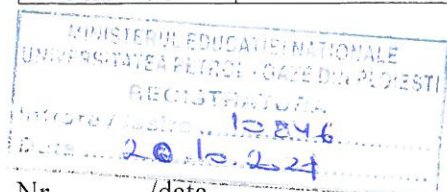 MINISTERUL EDUCAȚIEI NAȚIONALE
UNIVERSITATEA PETROL - GAZE DIN PLOIEȘTI
REGISTRATURA
Intrare / Ieșire ..... 10846
Data ..... 20.10.2021
Nr. /data